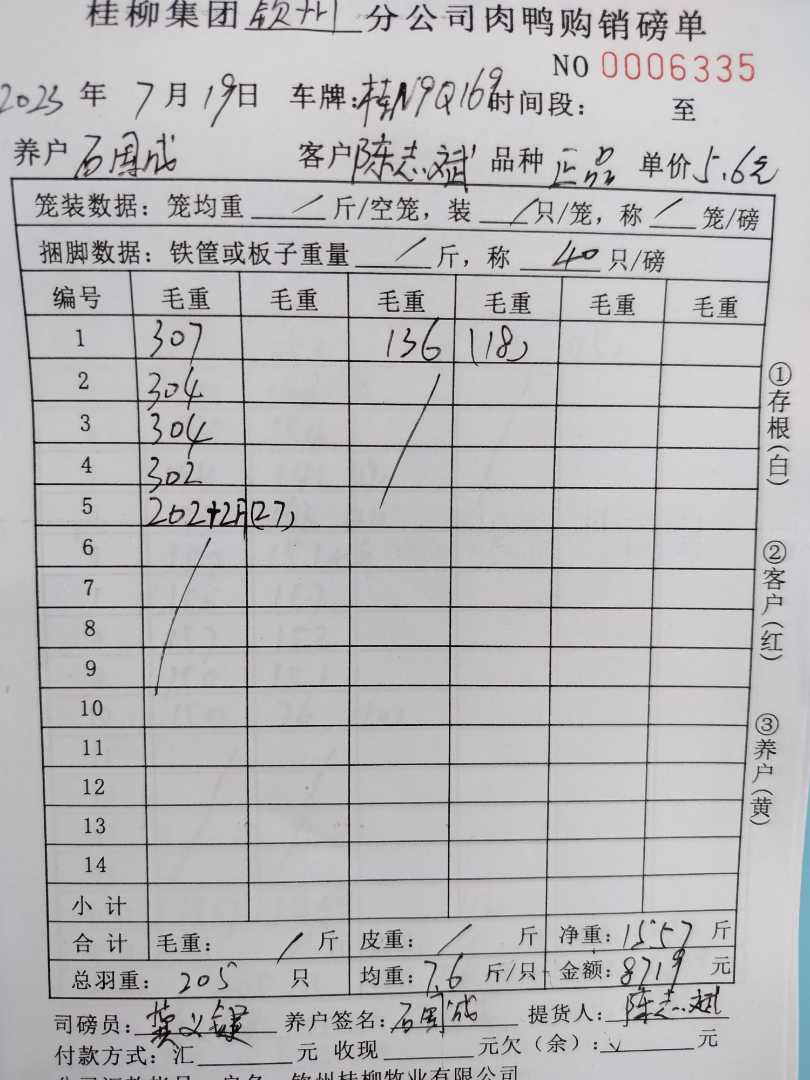 桂柳集团 钦州 分公司肉鸭购销磅单
NO 0006335
2023 年 7 月 19 日 车牌:桂N9Q169 时间段: 至
养户 石周成 客户 陈志斌 品种 正品 单价 5.6元
笼装数据: 笼均重 / 斤/空笼, 装 / 只/笼, 称 / 笼/磅
捆脚数据: 铁筐或板子重量 / 斤, 称 40 只/磅
编号 毛重 毛重 毛重 毛重 毛重 毛重
1 307 136 (18)
2 304
3 304
4 302
5 202+2 (27)
6
7
8
9
10
11
12
13
14
小计
合计 毛重: / 斤 皮重: / 斤 净重: 1557 斤
总羽重: 205 只 均重: 7.6 斤/只 金额: 8719 元
司磅员: 养户签名: 石周成 提货人: 陈志斌
付款方式: 汇 元 收现 元欠(余): 元
钦州桂柳牧业有限公司
①存根(白)
②客户(红)
③养户(黄)